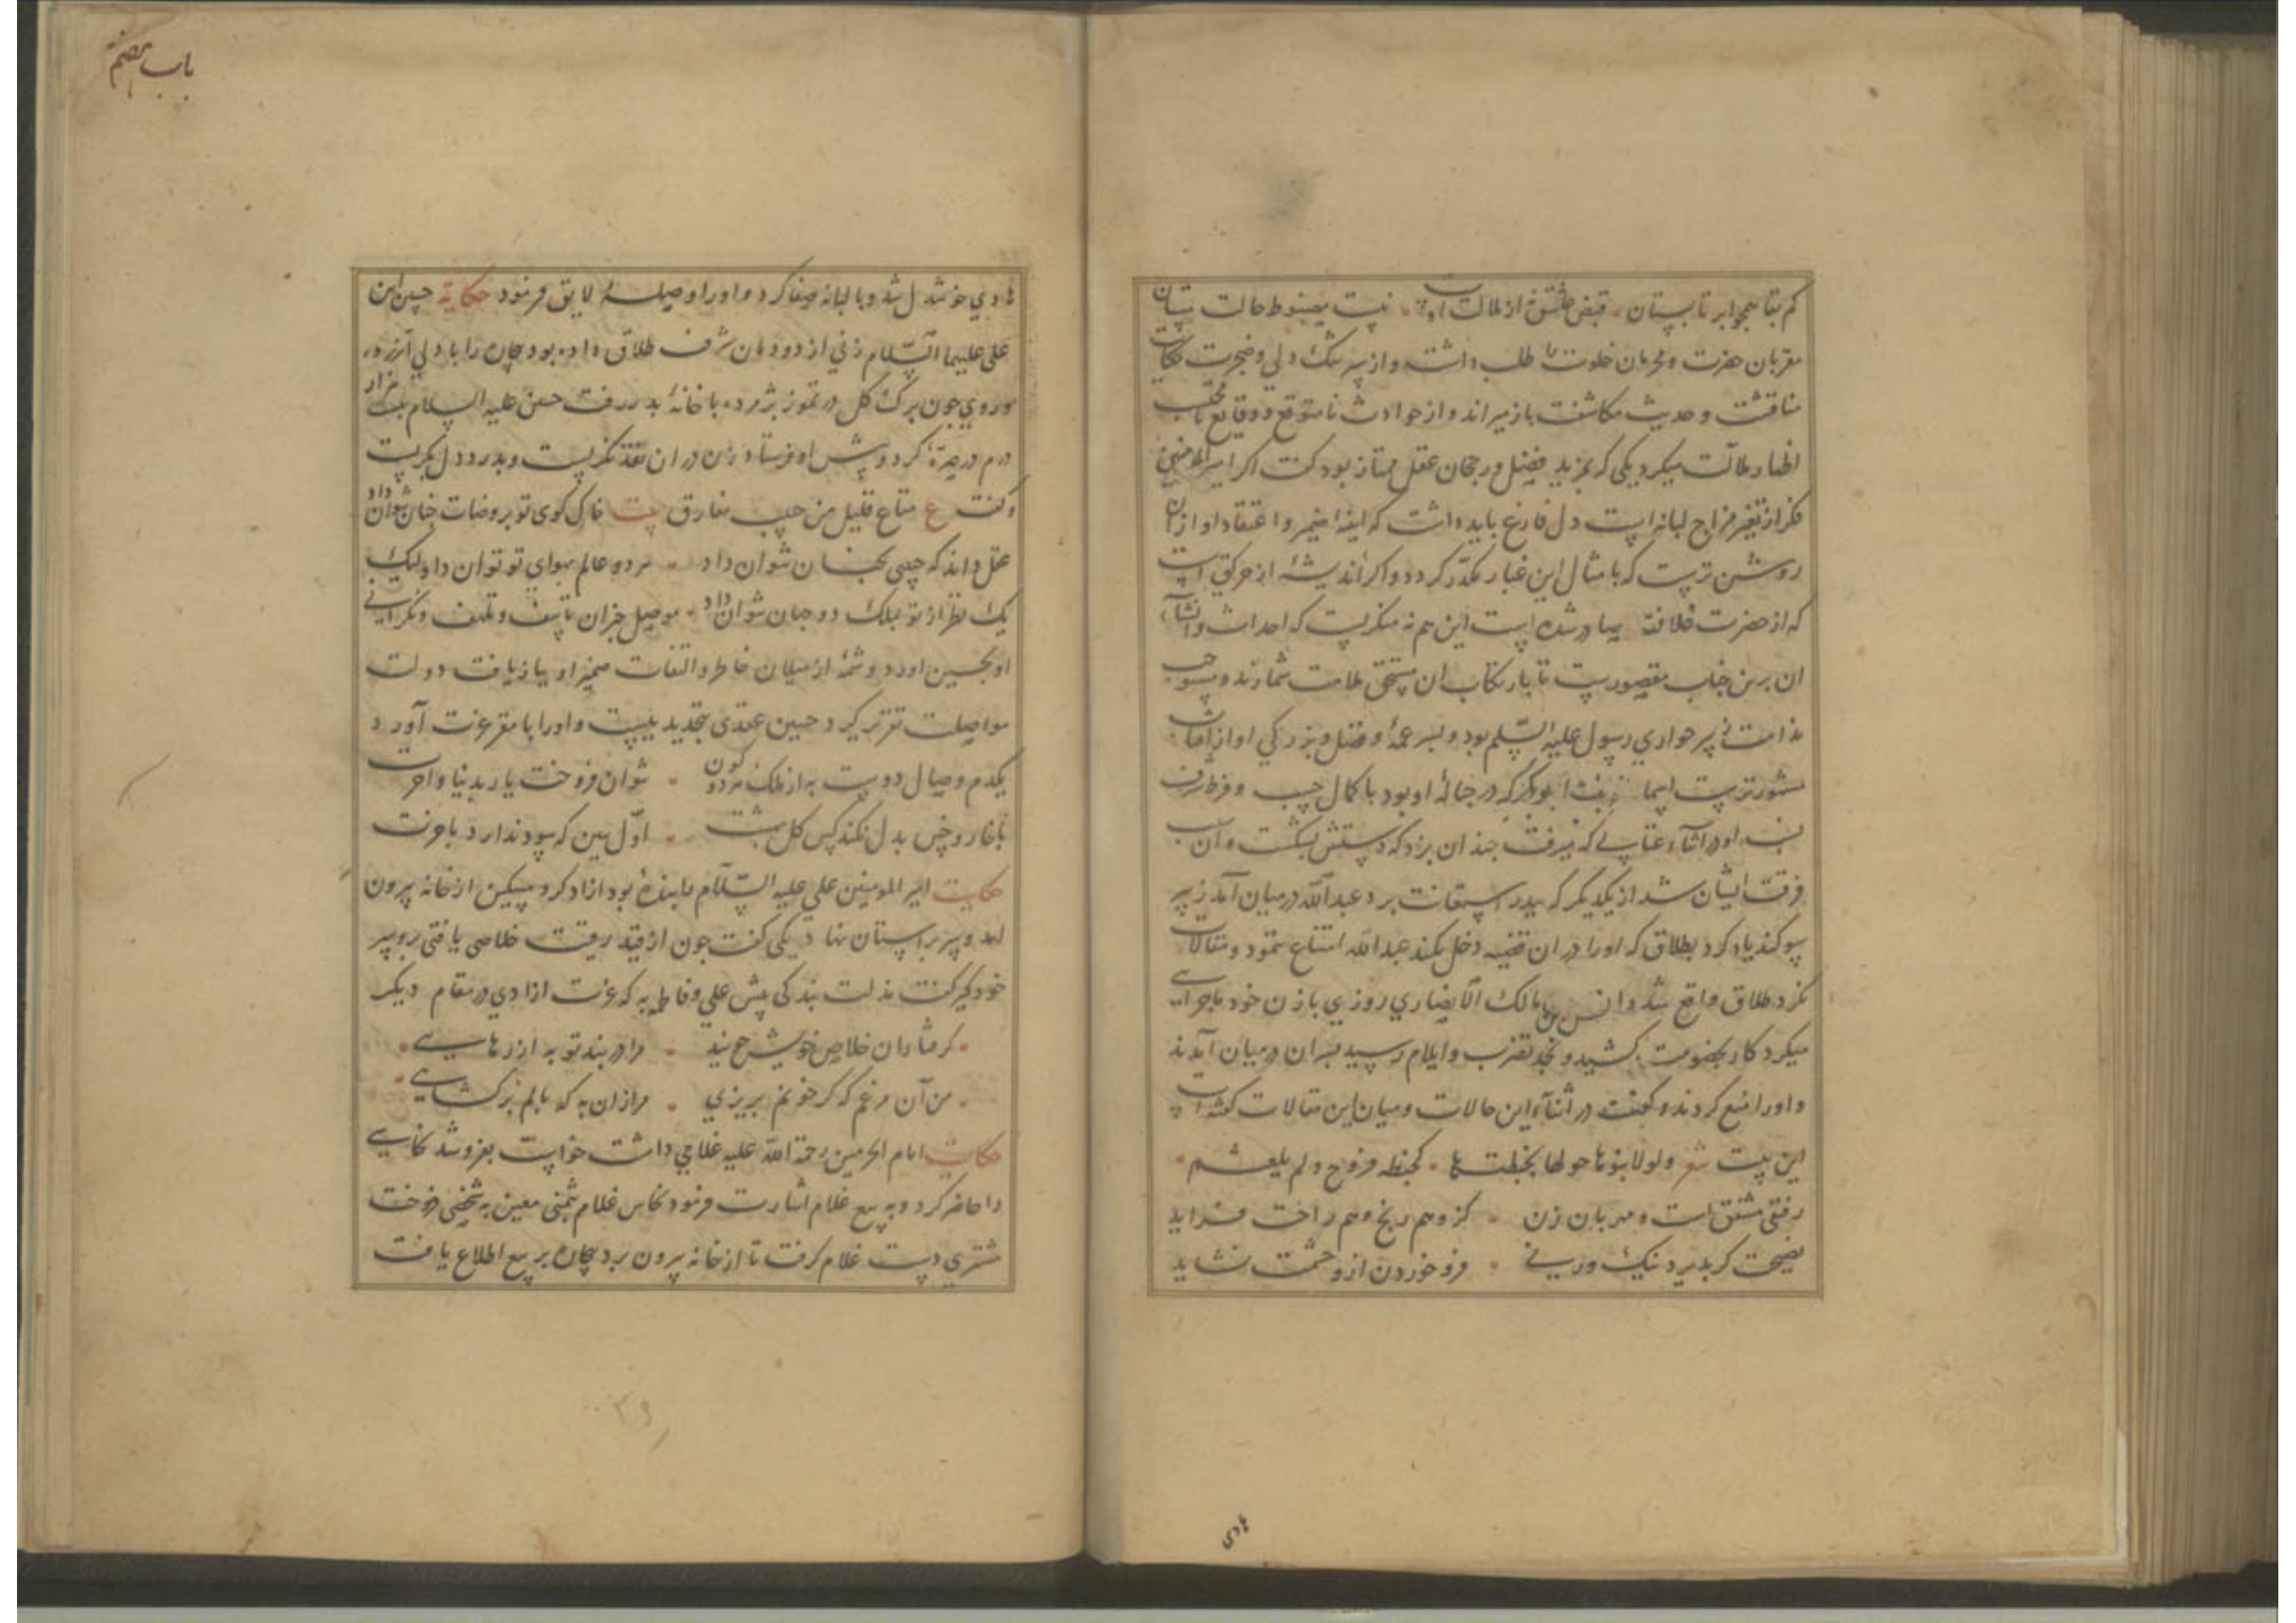 کم بقا همچو ابر تابستان قبض عشق نه از ملالت اوست نیست مضبوط حالت بستان
مقربان حضرت و محرمان خلوت را طلب داشت و از سر تنگ دلی و ضجرت حکایت
مناقشت و حدیث مکاشفت باز میراند و از حوادث نامتوقع و وقایع نامحتسب
اظهار ملالت میکرد یکی که بمزید فضل و رجحان عقل ممتاز بود کفت اکر امیرالمومنین
فکر از تغیر مزاج لبانه است دل فارغ باید داشت که اینه ضمیر و اعتقاد او از ان
روشن ترست که بامثال این غبار مکدر کردد و اکر اندیشه از حرکتی است
که از حضرت خلافت صادر شده است این هم نه منکریست که احداث و انشاء
ان برین جناب مقصورست تا بارتکاب ان مستحق ملامت شمارند و مستوجب
ندامت زبیر حواری رسول علیه السّلم بود و پسر عمهٔ و فضل و بزرکی او از آفتاب
مشهورترست اسما بنت ابوبکر که در حبالهٔ او بود با کمال حسب و فرط شرف
نسب او در اثناء عتابی که میرفت چندان بزد که دستش بشکست و آن سبب
فرقت ایشان شد از یکدیکر که بپدر استعانت برد عبدالله در میان آمد زبیر
سوکند یاد کرد بطلاق که او را در ان قضیه دخل نکند عبدالله امتناع ننمود و مقالات
نکرد طلاق واقع شد و انس بن مالک الانصاری روزی با زن خود ماجرایی
میکرد کار بخصومت کشید و بحد تضرب و ایلام رسید پسران در میان آمدند
و او را منع کردند و کفت در اثناء این حالات و میان این مقالات کفته است
این بیت شعر ولولا بنوها حولها لخبطتها کخبطه فروج ولم یلعثم
رفیقی مشفق است و مهربان زن کزو هم رنج و هم راحت فزاید
نصیحت کر پذیرد نیک ورنی فرو خوردن ازو خشمت نشاید
هادی
باب هفتم
هادی خوشدل شد و با لبانه صفا کرد و او را وصیلهٔ لایق فرمود حکایة حسین ابن
علی علیهما السّلام زنی از دودمان شرف طلاق داده بود بیچاره را با دلی آزرده
و روی چون برک کل در تموز پژمرده با خانهٔ پدر رفت حسین علیه السلام بیست هزار
درم در صرّهٔ کرد و پیش او فرستاد زن در ان نقد نکریست و بدرد دل بکریست
و کفت ع متاع قلیل من حبیب مفارق بیت خاک کوی تو بروضات جنان نتوان داد
عقل داند که چنین کنج چنان نتوان داد هر دو عالم بهوای تو توان داد ولیک
یک نظر از تو بملک دو جهان نتوان داد موصل خبر ان تاسف و تلهف و نکرانی
او بحسین اورد و شمهٔ از میلان خاطر و التفات ضمیر او بازیافت دولت
مواصلت تقریر کرد حسین عقدی بتجدید ببست و او را با مقر عزت آورد
یکدم وصال دوست به از ملک هر دو کون نتوان فروخت یار بدنیا و آخرت
با خار و خس بدل نکند کس کل بهشت اوّل ببین که سود ندارد باخرت
حکایت امیر المومنین علی علیه السّلام را بندهٔ بود ازاد کرد مسکین از خانه بیرون
امد و سر بر استان نهاد یکی کفت چون از قید رقیت خلاصی یافتی رو سر
خود کیر کفت مذلت بندکی پیش علی و فاطمه به که عزت ازادی در مقام دیکر
کرفتاران خلاص خویش جویند مرا در بند تو به از رهایی
من آن مرغم که کر خونم بریزی مرا زان به که بالم برکشایی
حکایت امام الحرمین رحمة الله علیه غلامی داشت خواست بفروشد نخاسی
را حاضر کرد و به بیع غلام اشارت فرمود نخاس غلام بثمنی معین به شخصی فروخت
مشتری دست غلام کرفت تا از خانه بیرون برد بیچاره بر بیع اطلاع یافت